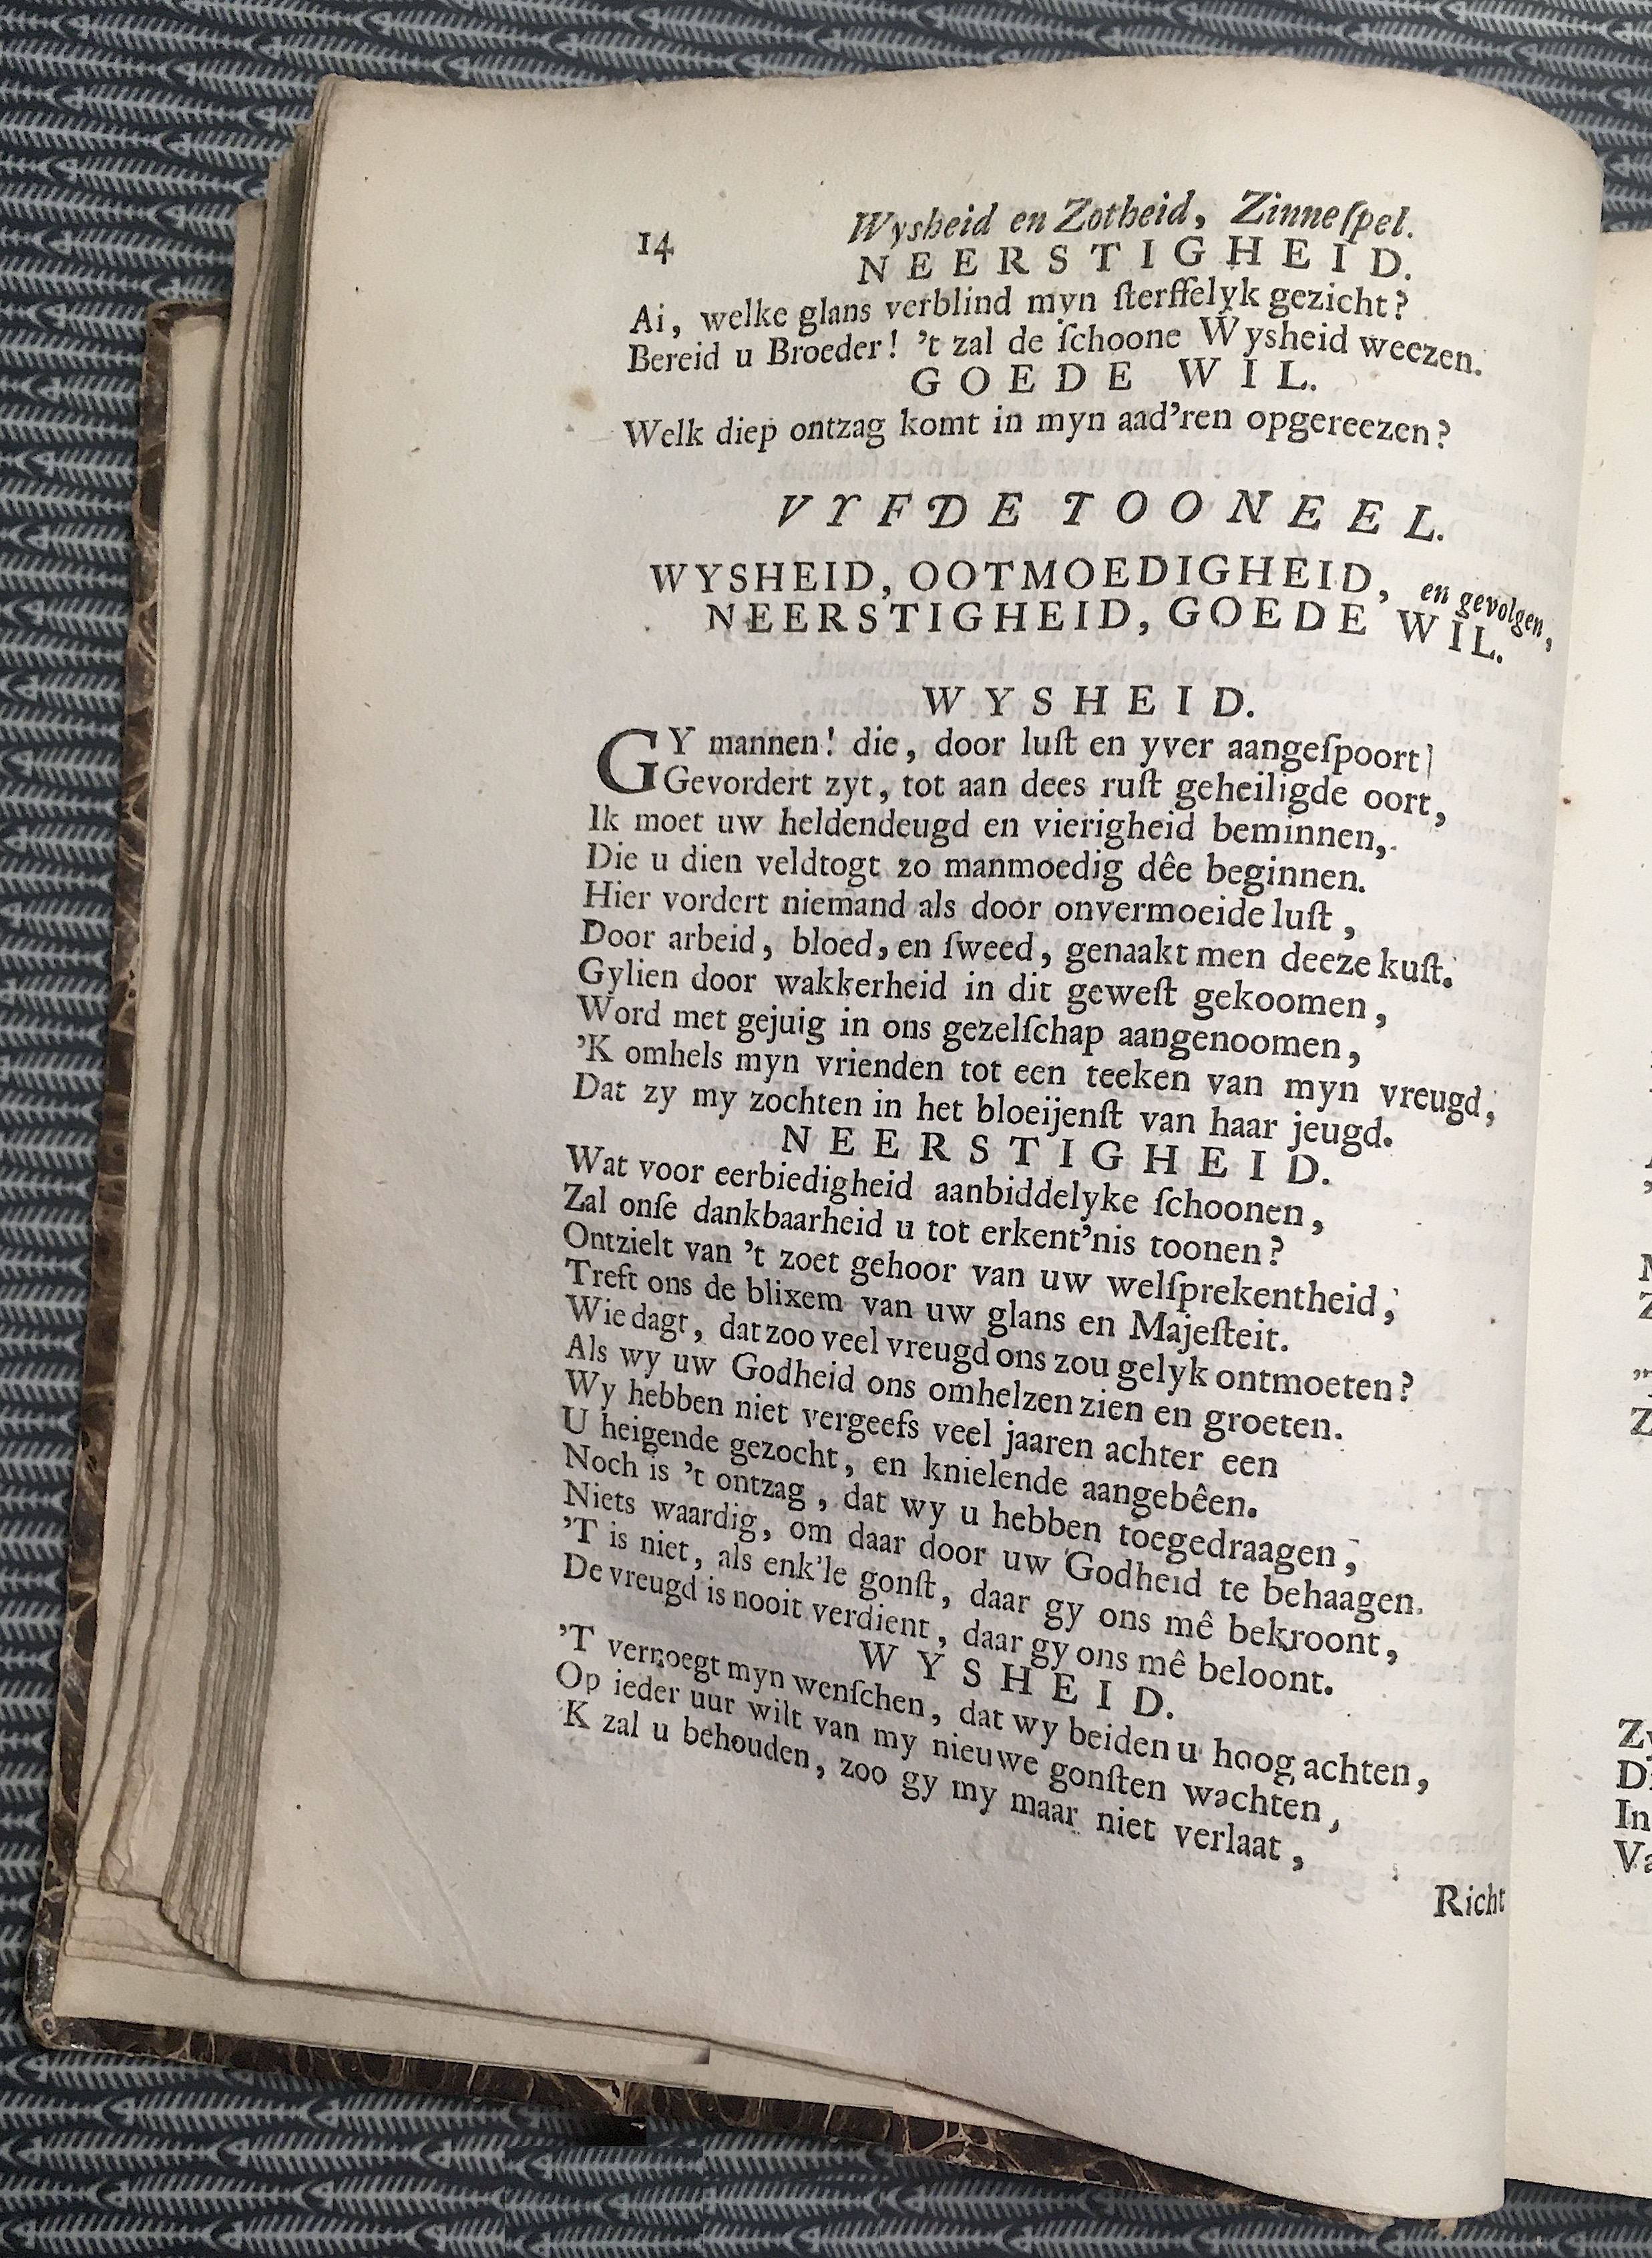 14 Wysheid en Zotheid, Zinneſpel.
NEERSTIGHEID.
Ai, welke glans verblind myn ſterffelyk gezicht?
Bereid u Broeder! 't zal de ſchoone Wysheid weezen.
GOEDE WIL.
Welk diep ontzag komt in myn aad'ren opgereezen?
VYFDE TOONEEL.
WYSHEID, OOTMOEDIGHEID, en gevolgen,
NEERSTIGHEID, GOEDE WIL.
WYSHEID.
GY mannen! die, door luſt en yver aangeſpoort
Gevordert zyt, tot aan dees ruſt geheiligde oort,
Ik moet uw heldendeugd en vierigheid beminnen,
Die u dien veldtogt zo manmoedig dêe beginnen.
Hier vordert niemand als door onvermoeide luſt,
Door arbeid, bloed, en ſweed, genaakt men deeze kuſt.
Gylien door wakkerheid in dit geweſt gekoomen,
Word met gejuig in ons gezelſchap aangenoomen,
'K omhels myn vrienden tot een teeken van myn vreugd,
Dat zy my zochten in het bloeijenſt van haar jeugd.
NEERSTIGHEID.
Wat voor eerbiedigheid aanbiddelyke ſchoonen,
Zal onſe dankbaarheid u tot erkent'nis toonen?
Ontzielt van 't zoet gehoor van uw welſprekentheid,
Treft ons de blixem van uw glans en Majeſteit.
Wie dagt, dat zoo veel vreugd ons zou gelyk ontmoeten?
Als wy uw Godheid ons omhelzen zien en groeten.
Wy hebben niet vergeefs veel jaaren achter een
U heigende gezocht, en knielende aangebêen.
Noch is 't ontzag, dat wy u hebben toegedraagen,
Niets waardig, om daar door uw Godheid te behaagen.
'T is niet, als enk'le gonſt, daar gy ons mê bekroont,
De vreugd is nooit verdient, daar gy ons mê beloont.
WYSHEID.
'T vernoegt myn wenſchen, dat wy beiden u hoog achten,
Op ieder uur wilt van my nieuwe gonſten wachten,
'K zal u behouden, zoo gy my maar niet verlaat,
Richt